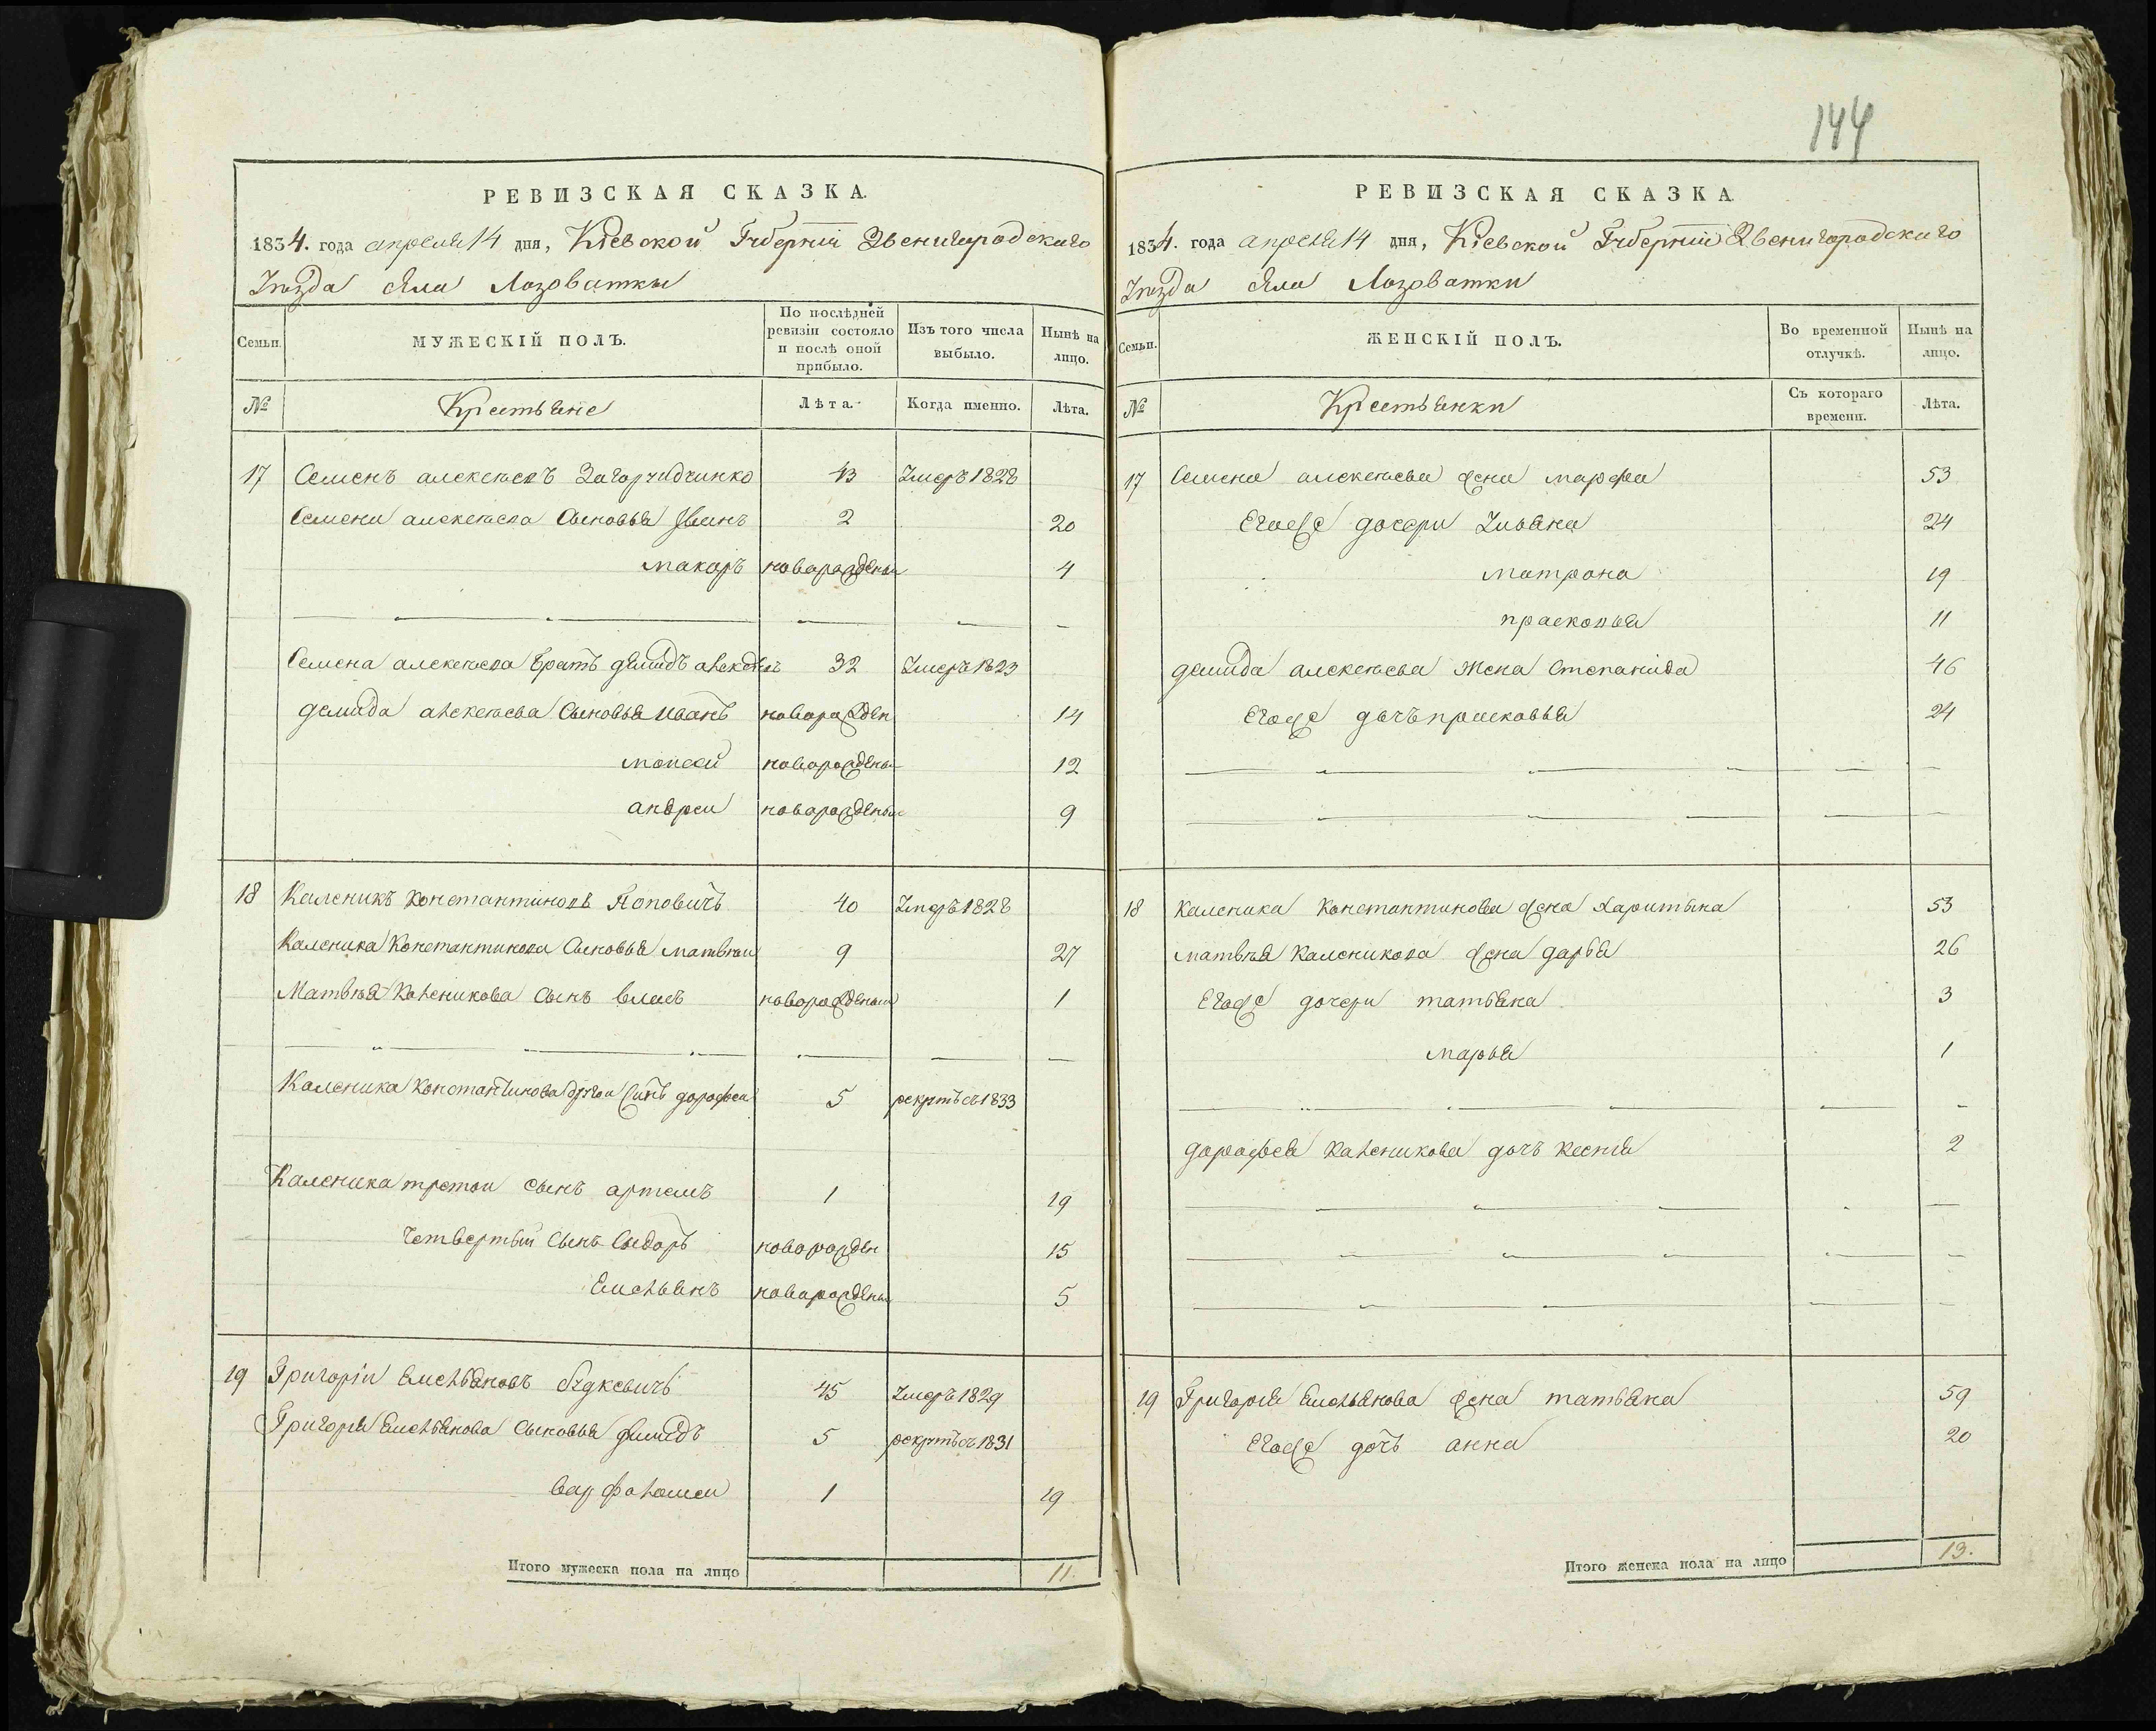 144
РЕВИЗСКАЯ СКАЗКА.
1834. года апреля 14 дня, Кіевской Губерніи Звенигородскаго
Уѣзда села Лозоватки
Семьи.
МУЖЕСКІЙ ПОЛЪ.
По послѣдней ревизіи состояло и послѣ оной прибыло.
Изъ того числа выбыло.
Нынѣ на лицо.
№ Крестьяне Лѣта. Когда именно. Лѣта.
17 Семенъ алексѣевъ 43 Умеръ 1828
Семена алексѣева Сыновья Иванъ 2 20
макаръ новорожденныи 4
Семена алексѣева братъ демидъ алексѣевъ 32 Умеръ 1823
демида алексѣева Сыновья иванъ новорожден 14
моисеи новорожденныи 12
андреи новорожденныи 9
18 Каленикъ Константиновъ Поповичъ 40 Умеръ 1828
Каленика Константинова Сыновья матвѣи 9 27
Матвѣя Каленикова Сынъ власъ новорожденыи 1
Каленика Константинова другои Синъ дорофеи 5 рекрутъ съ 1833
Каленика третои сынъ артемъ 1 19
Четвертый Сынъ Сыдоръ новорожден 15
Емельянъ новорожденыи 5
19 Григоріи Емельяновъ 45 Умеръ 1829
Григорія Емельянова Сыновья демидъ 5 рекрутъ съ 1831
варфоломеи 1 19
Итого мужеска пола на лицо 11.
РЕВИЗСКАЯ СКАЗКА.
1834. года апреля 14 дня, Кіевской Губерніи Звенигородскаго
Уѣзда села Лозоватки
Семьи.
ЖЕНСКІЙ ПОЛЪ.
Во временной отлучкѣ.
Нынѣ на лицо.
№ Крестьянки Съ котораго времени. Лѣта.
17 Семена алексѣева жена марфа 53
Егоже дочери Ульяна 24
матрона 19
прасковья 11
демида алексѣева жена степанида 46
Егоже дочъ прасковья 24
18 Каленика Константинова жена харитына 53
матвѣя Каленикова жена дарья 26
Егоже дочери татьяна 3
марья 1
дорофея Каленикова дочъ 2
19 Григорія Емельянова жена татьяна 59
Егоже дочъ анна 20
Итого женска пола на лицо 13.